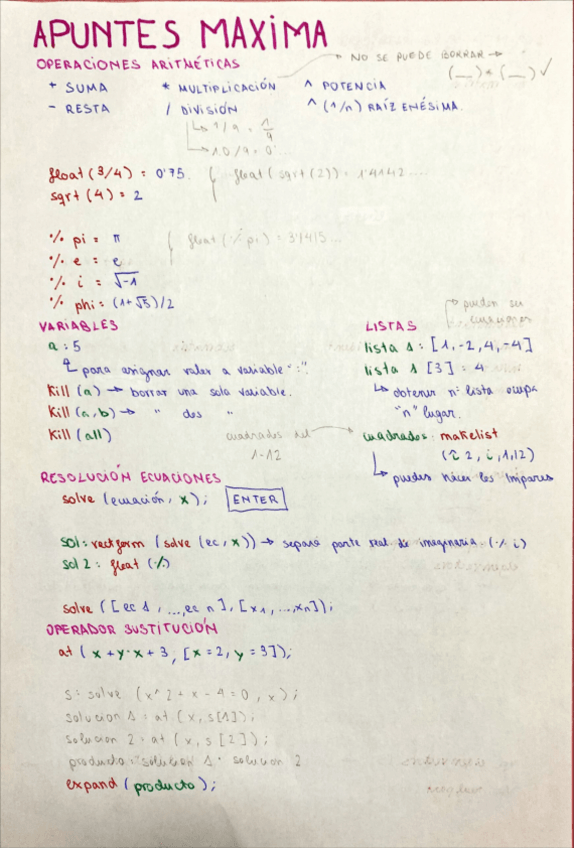 APUNTES MAXIMA
OPERACIONES ARITMÉTICAS
NO SE PUEDE BORRAR →
(__) * (__) ✓
+ SUMA * MULTIPLICACIÓN ^ POTENCIA
- RESTA / DIVISIÓN ^ (1/n) RAÍZ ENÉSIMA.
↳ 1/9 = 1/9
↳ 1.0/9 = 0'...
float (3/4) = 0'75. float (sqrt (2)) = 1'4142....
sqrt (4) = 2
% pi = π float (% pi) = 3'1415...
% e = e
% i = √-1
% phi = (1+√5)/2
VARIABLES
a : 5
para asignar valor a variable ":".
Kill (a) → borrar una sola variable.
Kill (a, b) → " dos "
Kill (all)
pueden ser
ecuaciones
LISTAS
lista 1 : [1, -2, 4, -4]
lista 1 [3] = 4
↳ obtener nº lista ocupa
"n" lugar.
cuadrados del
1-12
cuadrados: makelist
(i^2, i, 1, 12)
↳ puedes hacer los impares
RESOLUCIÓN ECUACIONES
solve (ecuación, x); ENTER
sol : rectform (solve (ec, x)) → separa parte real de imaginaria (% i)
sol 2 : float (%)
solve ([ec 1, ..., ec n], [x1, ..., xn]);
OPERADOR SUSTITUCIÓN
at (x + y · x + 3, [x = 2, y = 3]);
s : solve (x^2 + x - 4 = 0, x);
solucion 1 : at (x, s[1]);
solucion 2 : at (x, s[2]);
producto : solucion 1 · solucion 2
expand (producto);